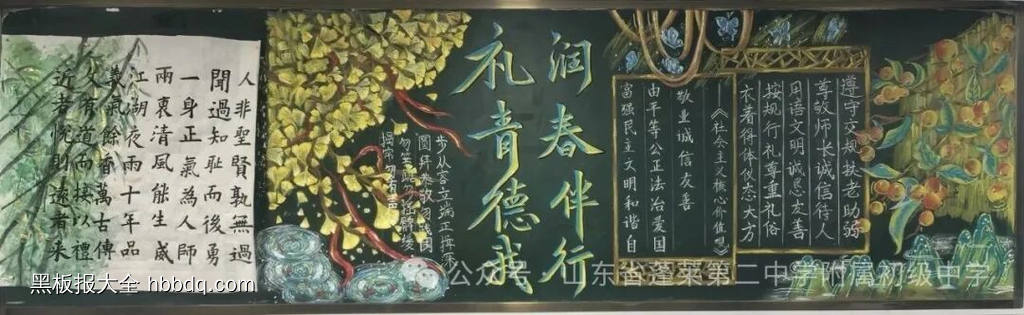 人非聖賢孰無過
聞過知恥而後勇
一身正氣為人師
兩袁清風能生威
江湖夜雨十年品
義氣餘香萬古傳
交有道而接以禮
近者悦則遠者來
润春伴行
礼青德我
步从容立端正
遵守交规扶老助弱
尊敬师长诚信待人
用语文明诚恳友善
按规行礼尊重礼俗
衣着得体仪态大方
《社会主义核心价值观》
敬业诚信友善
由平等公正法治爱国
富强民主文明和谐自
公众号·山东省蓬莱第二中学附属初级中学
黑板报大全 hbbdq.com